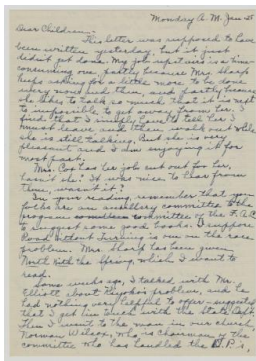 Monday A.M. Jan 25
Dear Children -
This letter was supposed to have
been written yesterday, but it just
didn't get done. My job up there is so time-
consuming one, partly because Mrs. Sharp
keeps asking for a little more to be done
every now and then, and partly because
she likes to talk so much that it is next
to impossible to get away from her. I
find that I simply have to tell her I
must leave and then walk out while
she is still talking. But she is very
pleasant and I am enjoying it for
most part.
Mrs. Cox has her job cut out for her,
hasn't she? It was nice to hear from
them, wasn't it?
In your reading, remember that your
folks are an auxiliary committee to the
program committee of the F.A.C.
to suggest some good books. I suppose
Road Without Turning is one on the race
problem. Mrs. Sharp has been given
North With the Spring, which I want to
read.
Some weeks ago, I talked with Mr.
Elliott about Kiyoko's problem, and he
had nothing very helpful to offer - suggested
that I get in touch with the State Dept.
Then I went to the man in our church,
Norman Wilson, who is chairman of the
committee who has handled the D.P.'s,